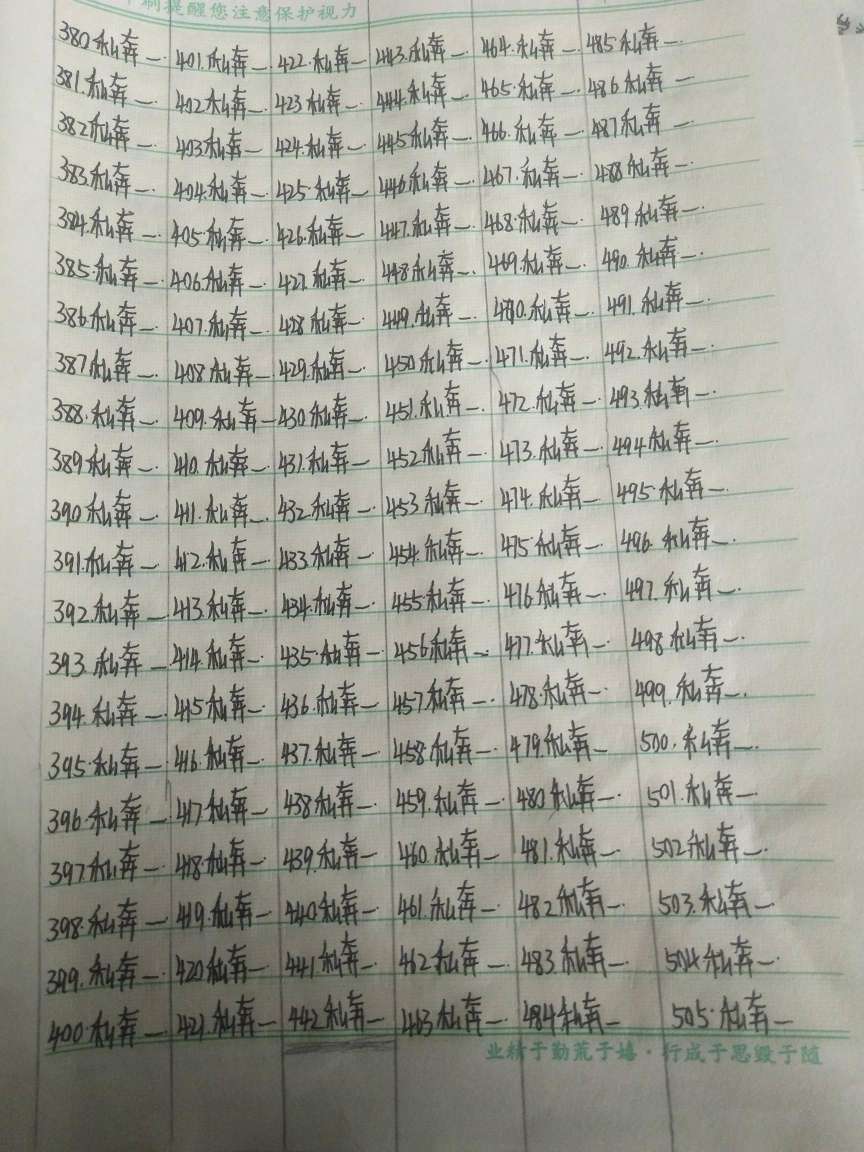 刷提醒您注意保护视力
380.私奔一.
381.私奔一.
382.私奔一.
383.私奔一.
384.私奔一.
385.私奔一.
386.私奔一.
387.私奔一.
388.私奔一.
389.私奔一.
390.私奔一.
391.私奔一.
392.私奔一.
393.私奔一.
394.私奔一.
395.私奔一.
396.私奔一.
397.私奔一.
398.私奔一.
399.私奔一.
400.私奔一.
401.私奔一.
402.私奔一.
403.私奔一.
404.私奔一.
405.私奔一.
406.私奔一.
407.私奔一.
408.私奔一.
409.私奔一.
410.私奔一.
411.私奔一.
412.私奔一.
413.私奔一.
414.私奔一.
415.私奔一.
416.私奔一.
417.私奔一.
418.私奔一.
419.私奔一.
420.私奔一.
421.私奔一.
422.私奔一.
423.私奔一.
424.私奔一.
425.私奔一.
426.私奔一.
427.私奔一.
428.私奔一.
429.私奔一.
430.私奔一.
431.私奔一.
432.私奔一.
433.私奔一.
434.私奔一.
435.私奔一.
436.私奔一.
437.私奔一.
438.私奔一.
439.私奔一.
440.私奔一.
441.私奔一.
442.私奔一.
443.私奔一.
444.私奔一.
445.私奔一.
446.私奔一.
447.私奔一.
448.私奔一.
449.私奔一.
450.私奔一.
451.私奔一.
452.私奔一.
453.私奔一.
454.私奔一.
455.私奔一.
456.私奔一.
457.私奔一.
458.私奔一.
459.私奔一.
460.私奔一.
461.私奔一.
462.私奔一.
463.私奔一.
464.私奔一.
465.私奔一.
466.私奔一.
467.私奔一.
468.私奔一.
469.私奔一.
470.私奔一.
471.私奔一.
472.私奔一.
473.私奔一.
474.私奔一.
475.私奔一.
476.私奔一.
477.私奔一.
478.私奔一.
479.私奔一
480.私奔一.
481.私奔一.
482.私奔一.
483.私奔一.
484.私奔一
485.私奔一.
486.私奔一
487.私奔一
488.私奔一.
489.私奔一.
490.私奔一.
491.私奔一.
492.私奔一.
493.私奔一.
494.私奔一.
495.私奔一.
496.私奔一.
497.私奔一.
498.私奔一.
499.私奔一.
500.私奔一.
501.私奔一.
502.私奔一.
503.私奔一
504.私奔一.
505.私奔一
业精于勤荒于嬉·行成于思毁于随